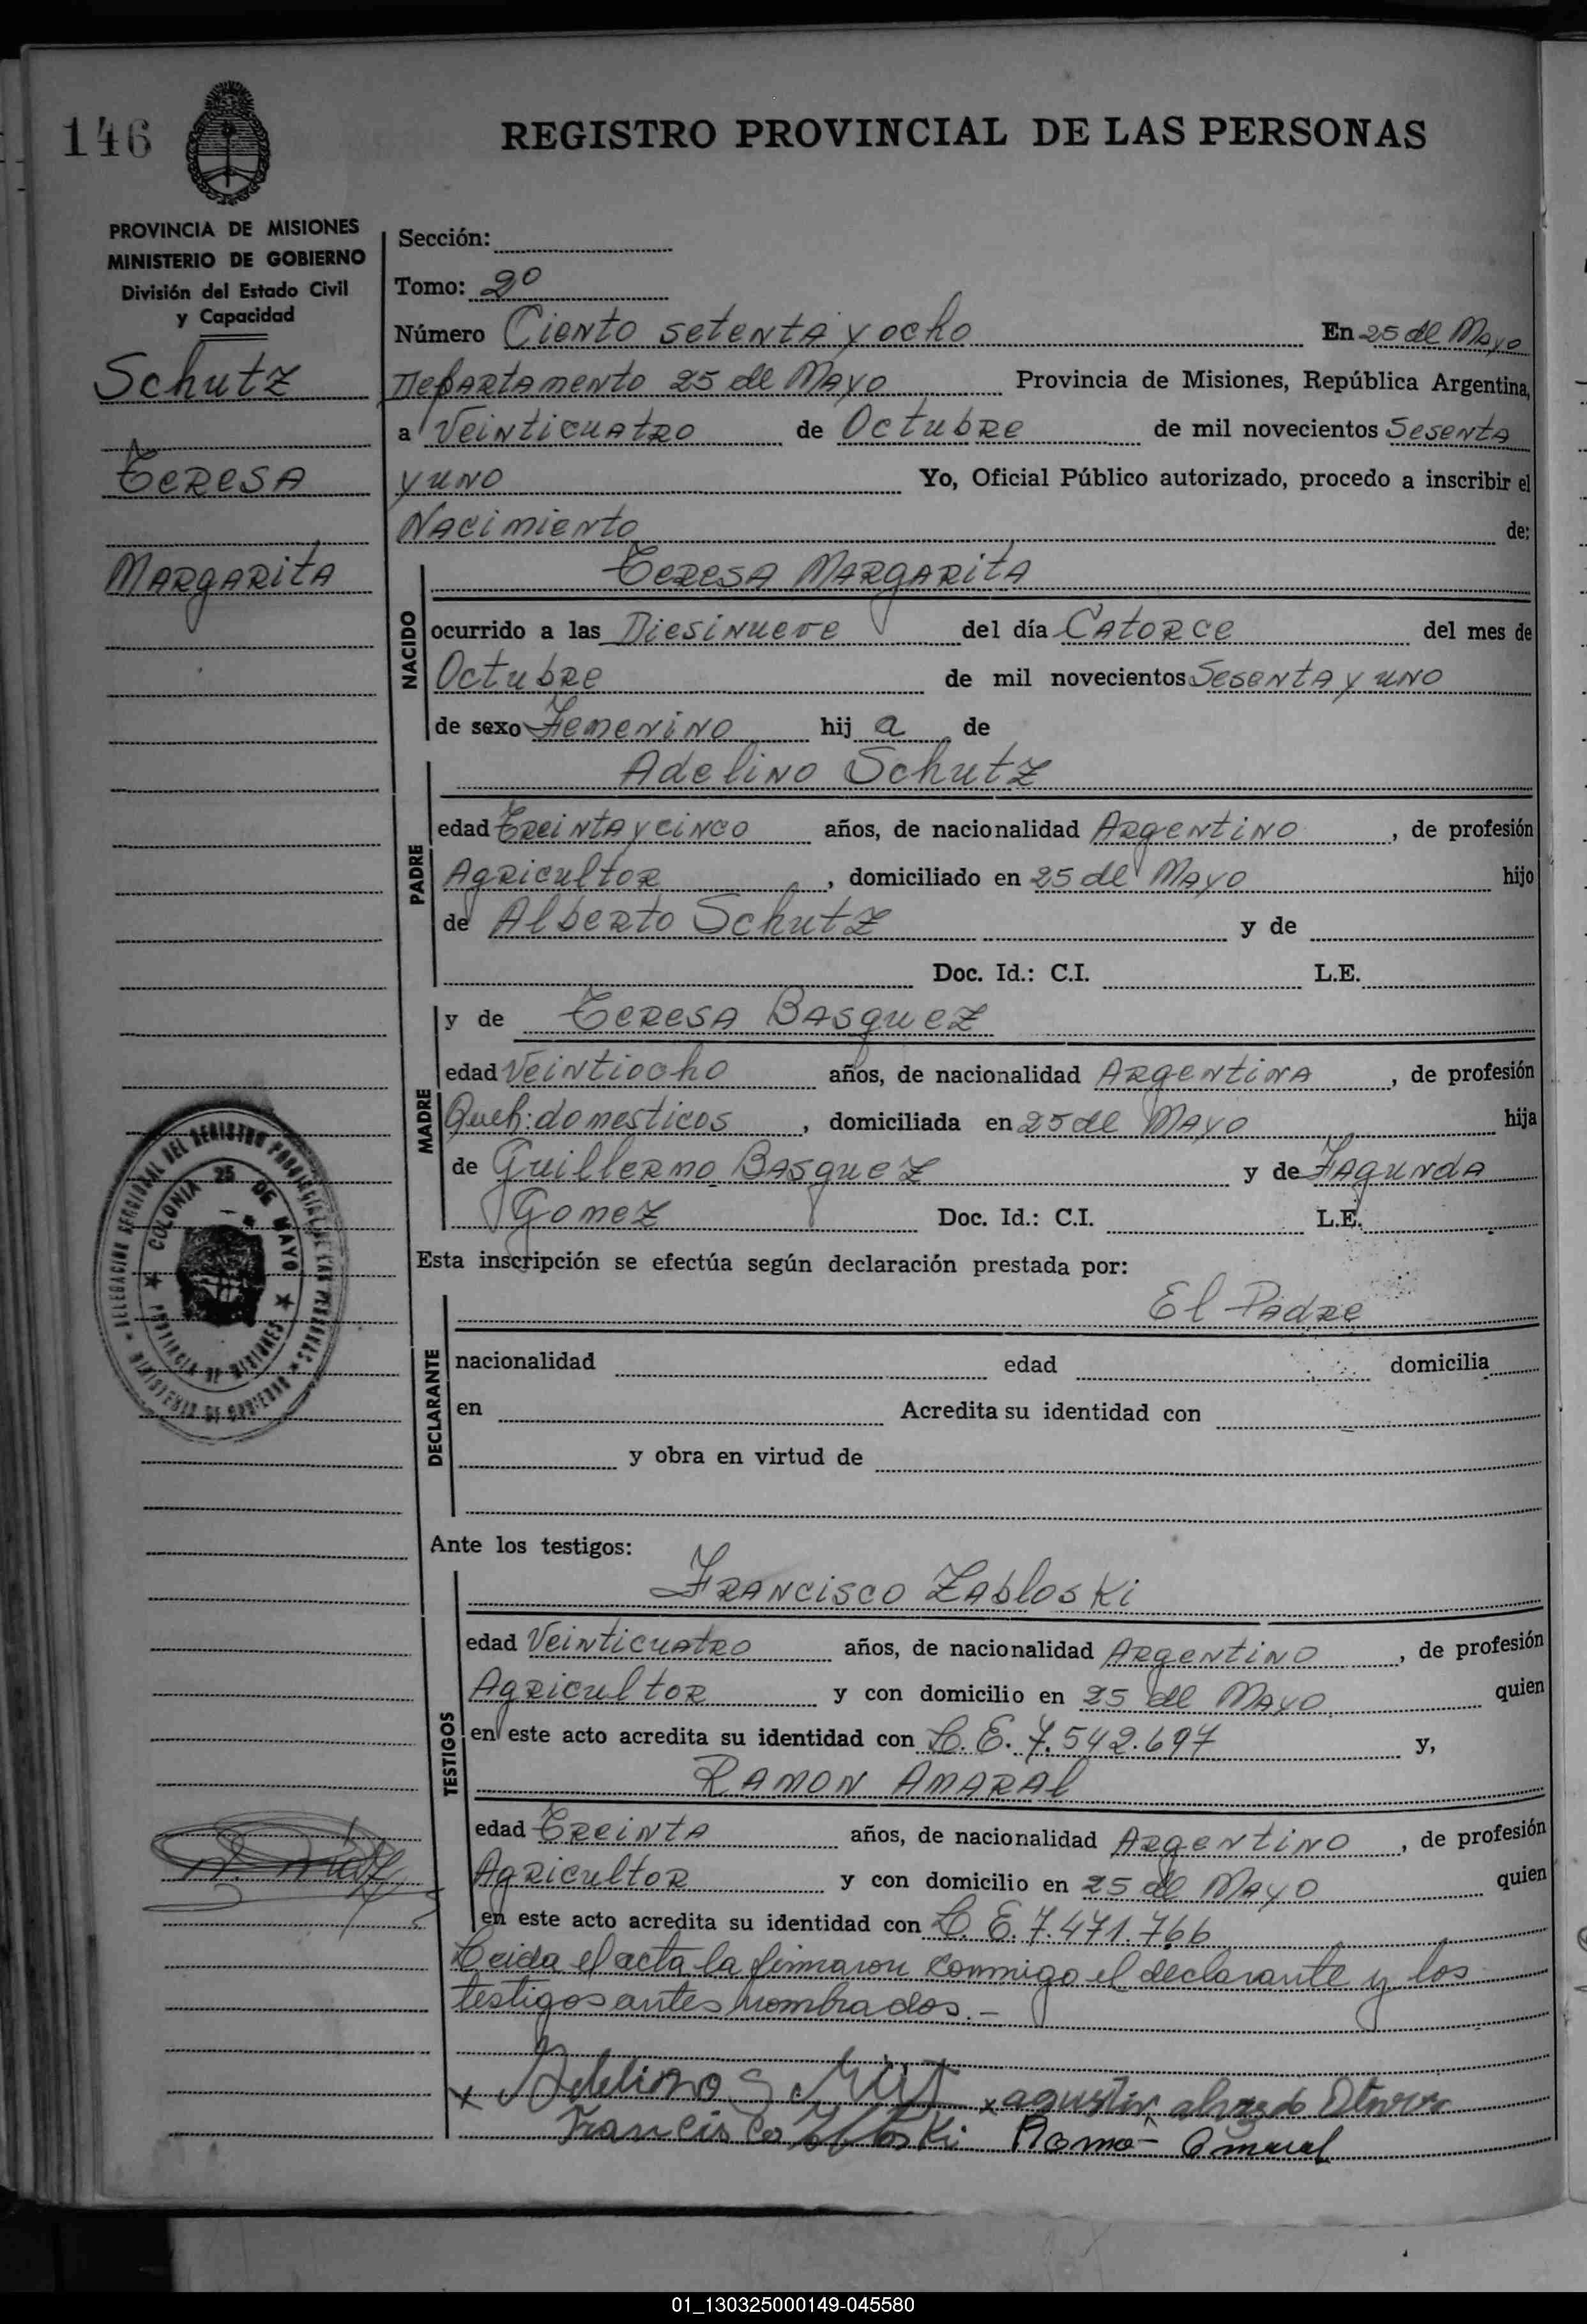 146
REGISTRO PROVINCIAL DE LAS PERSONAS
PROVINCIA DE MISIONES
MINISTERIO DE GOBIERNO
División del Estado Civil
y Capacidad
Schutz
Teresa
Margarita
Sección:
Tomo: 2º
Número Ciento setenta y ocho En 25 de Mayo
Departamento 25 de Mayo Provincia de Misiones, República Argentina,
a Veinticuatro de Octubre de mil novecientos Sesenta
y uno Yo, Oficial Público autorizado, procedo a inscribir el
Nacimiento de:
NACIDO
Teresa Margarita
ocurrido a las Diesinueve del día Catorce del mes de
Octubre de mil novecientos Sesenta y uno
de sexo Femenino hij a de
PADRE
Adelino Schutz
edad Treinta y cinco años, de nacionalidad Argentino, de profesión
Agricultor, domiciliado en 25 de Mayo hijo
de Alberto Schutz y de
Doc. Id.: C.I. L.E.
MADRE
y de Teresa Basquez
edad Veintiocho años, de nacionalidad Argentina, de profesión
Queh: domesticos, domiciliada en 25 de Mayo hija
de Guillermo Basquez y de Fagunda
Gomez Doc. Id.: C.I. L.E.
DELEGACION SECCIONAL DEL REGISTRO PROVINCIAL DE LAS PERSONAS
MINISTERIO DE GOBIERNO
COLONIA 25 DE MAYO
PROVINCIA DE MISIONES
Esta inscripción se efectúa según declaración prestada por:
DECLARANTE
El Padre
nacionalidad edad domicilia
en Acredita su identidad con
y obra en virtud de
Ante los testigos:
TESTIGOS
Francisco Zabloski
edad Veinticuatro años, de nacionalidad Argentino, de profesión
Agricultor y con domicilio en 25 de Mayo quien
en este acto acredita su identidad con L.E. 7.542.697 y,
Ramon Amaral
edad Treinta años, de nacionalidad Argentino, de profesión
Agricultor y con domicilio en 25 de Mayo quien
en este acto acredita su identidad con L.E. 7.471.766
Leida el acta la firmaron conmigo el declarante y los
testigos antes nombrados.-
x Adelino x agustin
Francisco Zabloski Ramo- Amaral
01_130325000149-045580